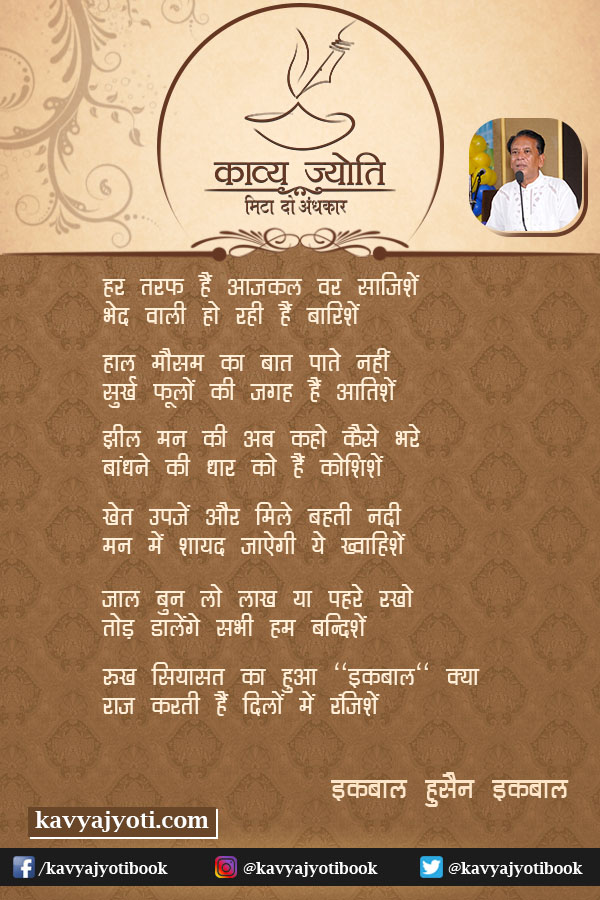 काव्य ज्योति
मिटा दो अंधकार
हर तरफ हैं आजकल वर साजिशें
भेद वाली हो रही हैं बारिशें
हाल मौसम का बात पाते नहीं
सुर्ख फूलों की जगह हैं आतिशें
झील मन की अब कहो कैसे भरे
बांधने की धार को हैं कोशिशें
खेत उपजें और मिले बहती नदी
मन में शायद जाऐगी ये ख्वाहिशें
जाल बुन लो लाख या पहरे रखो
तोड़ डालेंगे सभी हम बन्दिशें
रुख सियासत का हुआ “इकबाल“ क्या
राज करती हैं दिलों में रंजिशें
इकबाल हुसैन इकबाल
kavyajyoti.com
/kavyajyotibook @kavyajyotibook @kavyajyotibook